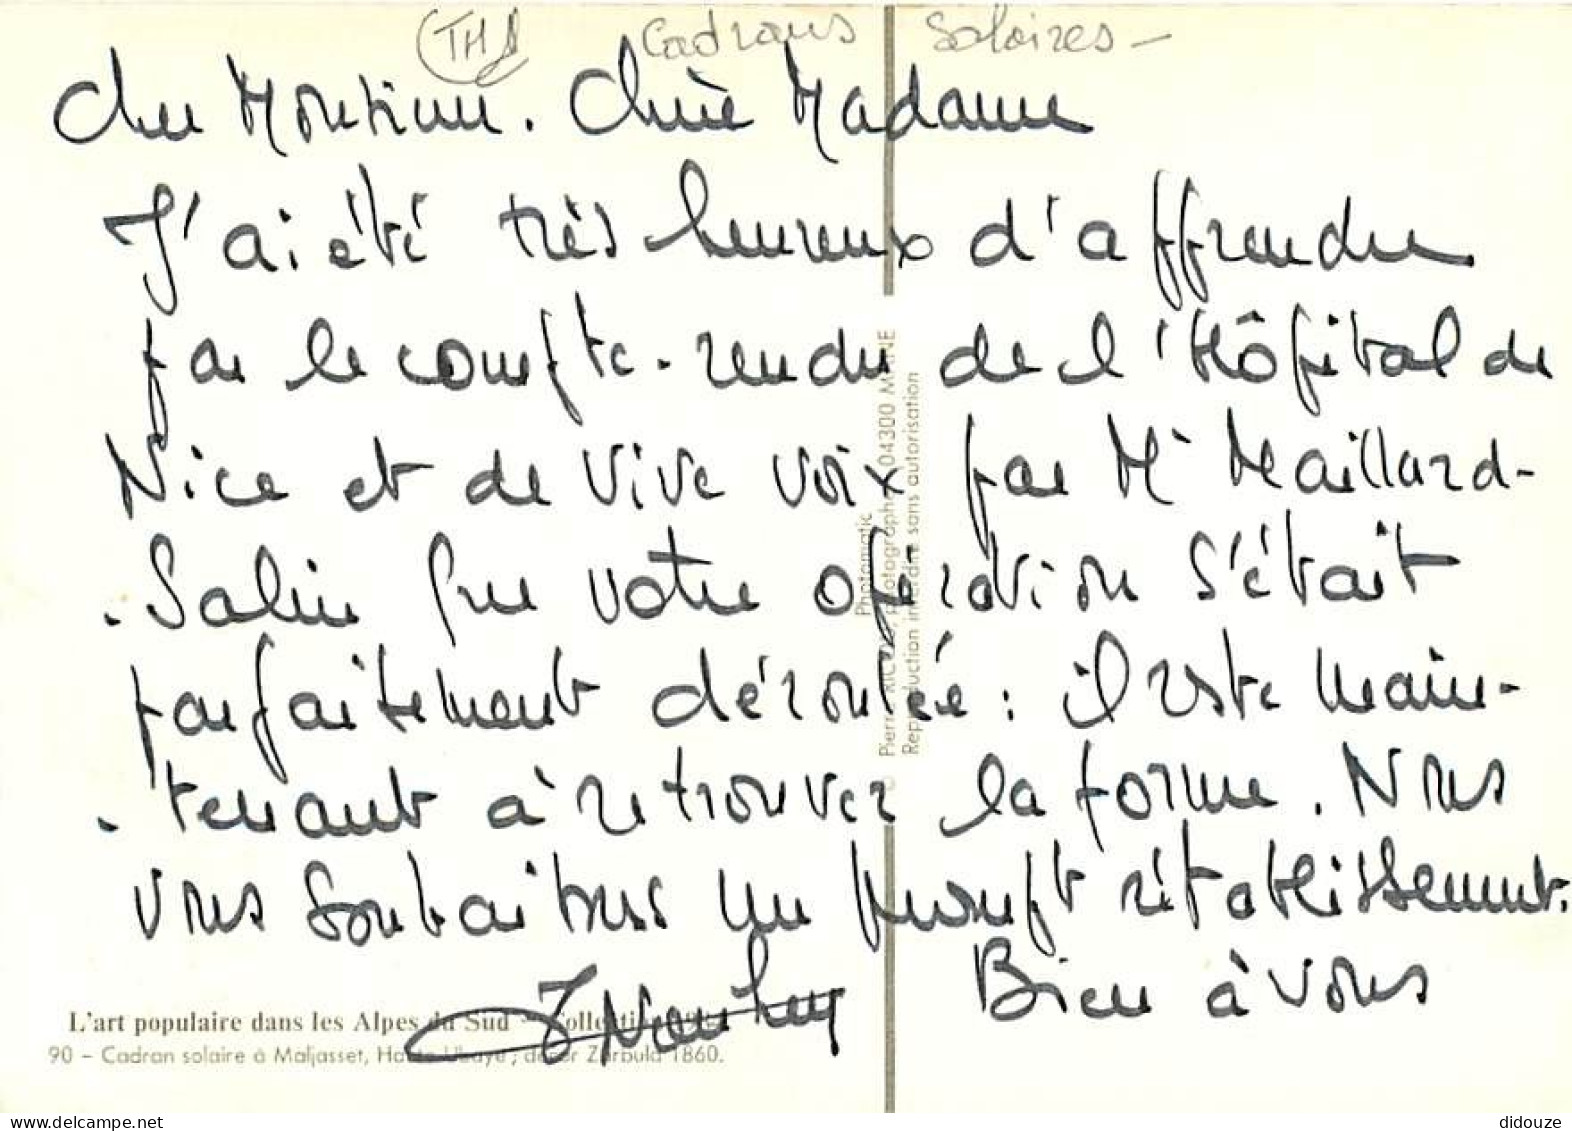 TH Cadrans Solaires -
Cher Monsieur. Chère Madame
J'ai été très heureux d'apprendre
par le compte-rendu de l'Hôpital de
Nice et de vive voix par Mr Maillard-
-Salin que votre opération s'était
parfaitement déroulée : il reste main-
-tenant à retrouver la forme. Nous
vous souhaitons un prompt rétablissement.
Bien à vous
L'art populaire dans les Alpes du Sud
90 - Cadran solaire à Maljasset, Haute-Ubaye ; décor Zarbula 1860.
Photomatic
Pierre RICOU, Photographe, 04300 MANE
Reproduction interdite sans autorisation
didouze